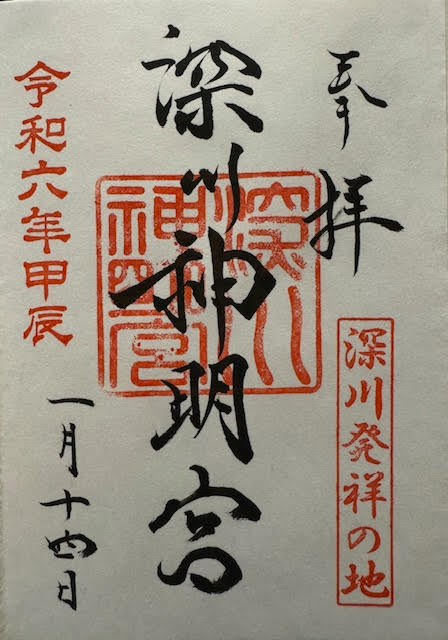 奉拝
深川発祥の地
深川神明宮
深川神明宮
令和六年甲辰
一月十四日